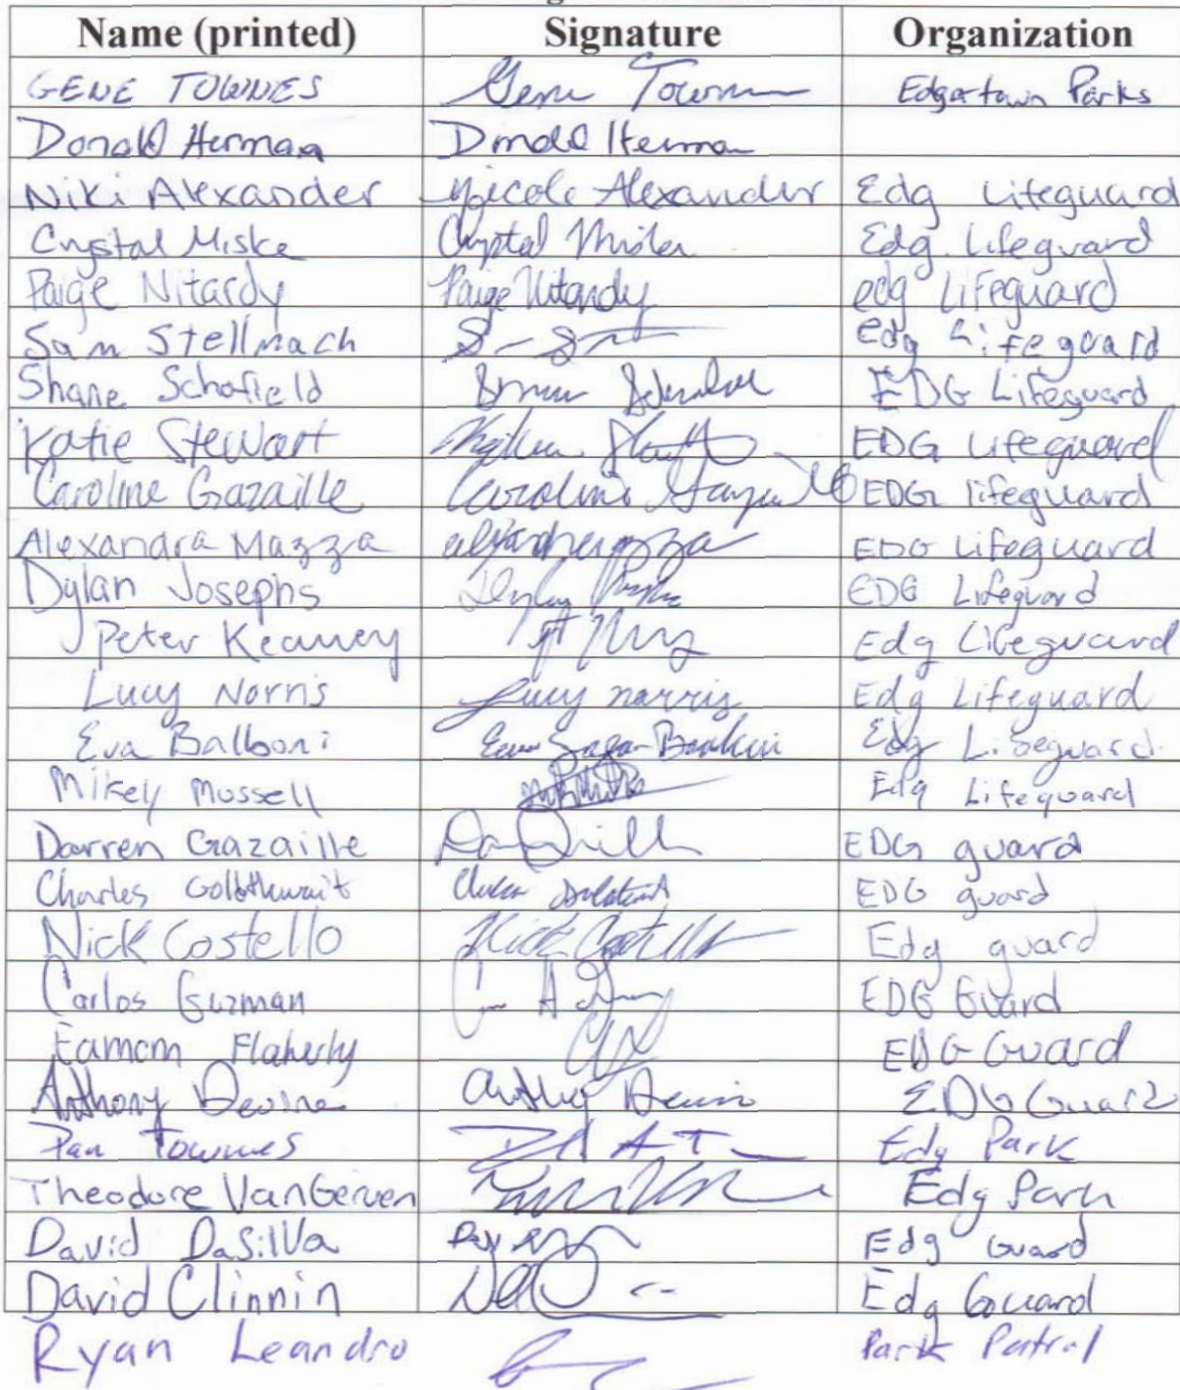 Name (printed) Signature Organization
GENE TOWNES Gene Townes Edgartown Parks
Donald Herman Donald Herman
Niki Alexander Nicole Alexander Edg Lifeguard
Crystal Miske Crystal Miske Edg. Lifeguard
Paige Nitardy Paige Nitardy edg Lifeguard
Sam Stellmach Edg Lifeguard
Shane Schofield EDG Lifeguard
Katie Stewart EDG Lifeguard
Caroline Gazaille Caroline EDG lifeguard
Alexandra Mazza EDG Lifeguard
Dylan Josephs EDG Lifeguard
Peter Keaney Edg Lifeguard
Lucy Norris Lucy norris Edg Lifeguard
Eva Balboni Edg Lifeguard
Mikey Mussell Edg Lifeguard
Darren Gazaille EDG guard
Charles Goldthwait EDG guard
Nick Costello Nick Costello Edg guard
Carlos Guzman EDG Guard
Eamonn Flaherty EDG Guard
Anthony Devine EDG Guard
Dan Townes Edg Park
Theodore VanGerven Edg Park
David DaSilva Edg Guard
David Clinnin Edg Gouard
Ryan Leandro Park Patrol